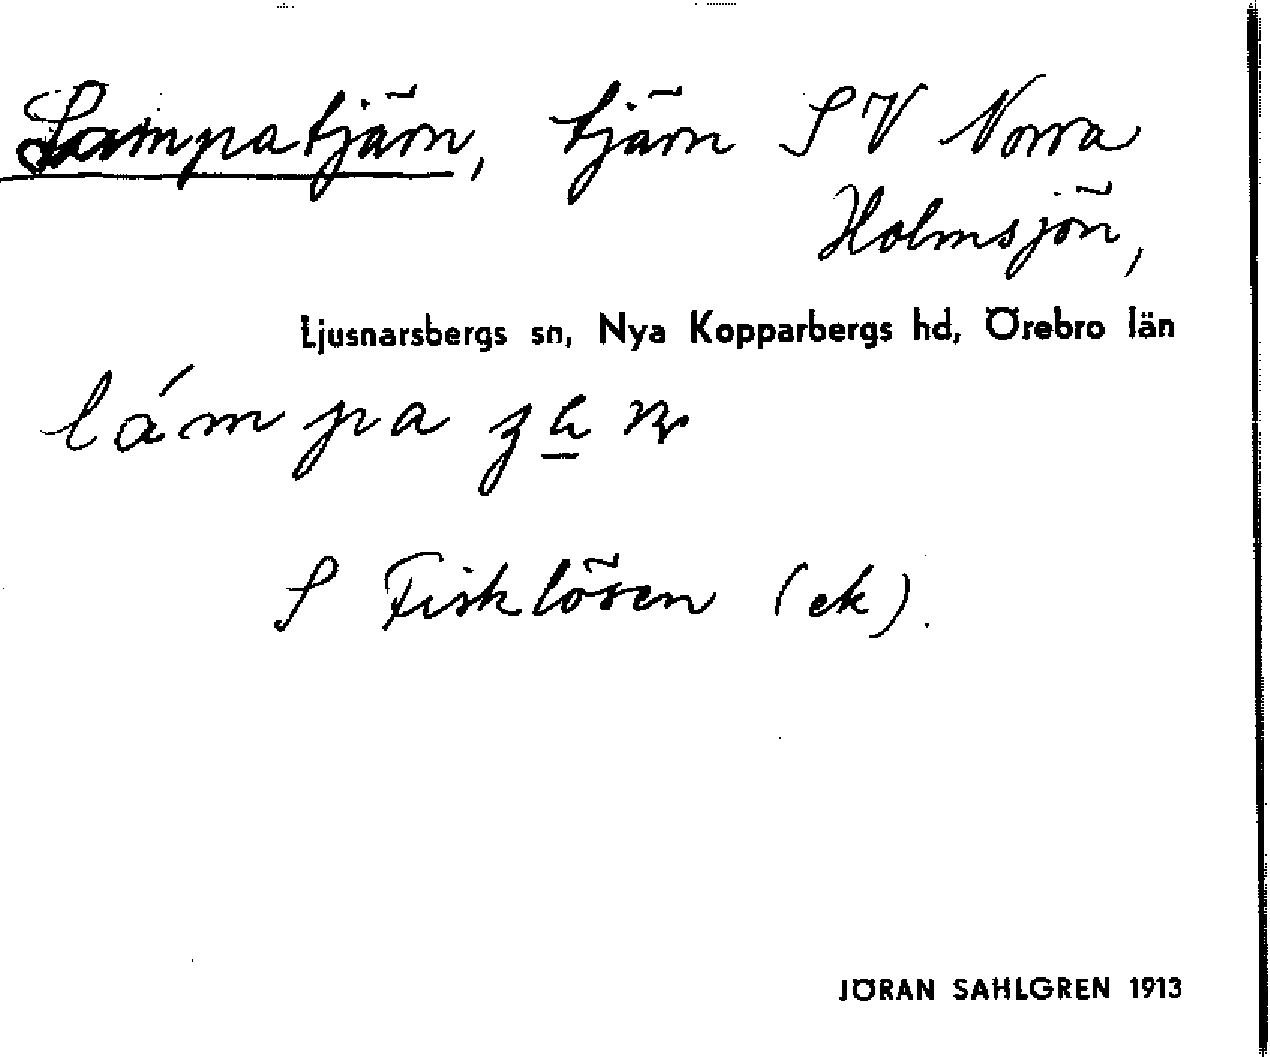 Lampatjärn, tjärn SV Norra
Holmsjön,
Ljusnarsbergs sn, Nya Kopparbergs hd, Örebro län
lámpa
S Fisklösen (ek).
JÖRAN SAHLGREN 1913